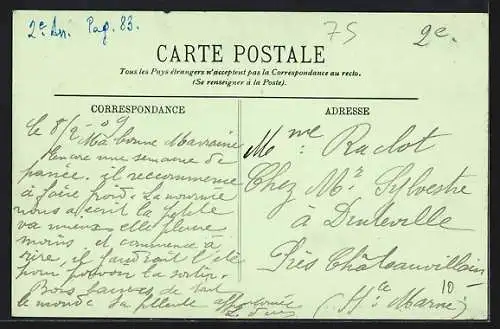 2e Arr. Pag. 83.
75
2e
CARTE POSTALE
Tous les Pays étrangers n'acceptent pas la Correspondance au recto.
(Se renseigner à la Poste).
CORRESPONDANCE
le 8/2 09
Ma bonne Marraine
Encore une semaine de
il recommence
à faire froid. La nourrice
nous a écrit la petite
va mieux elle pleure
moins et commence à
rire, il faudrait l'été
pour pouvoir la sortir.
Bons baisers de tout
le monde ta filleule
ADRESSE
Mme Ruclot
Chez Mr Sylvestre
à Dinteville
Près Châteauvillain
(Hte Marne)
10-